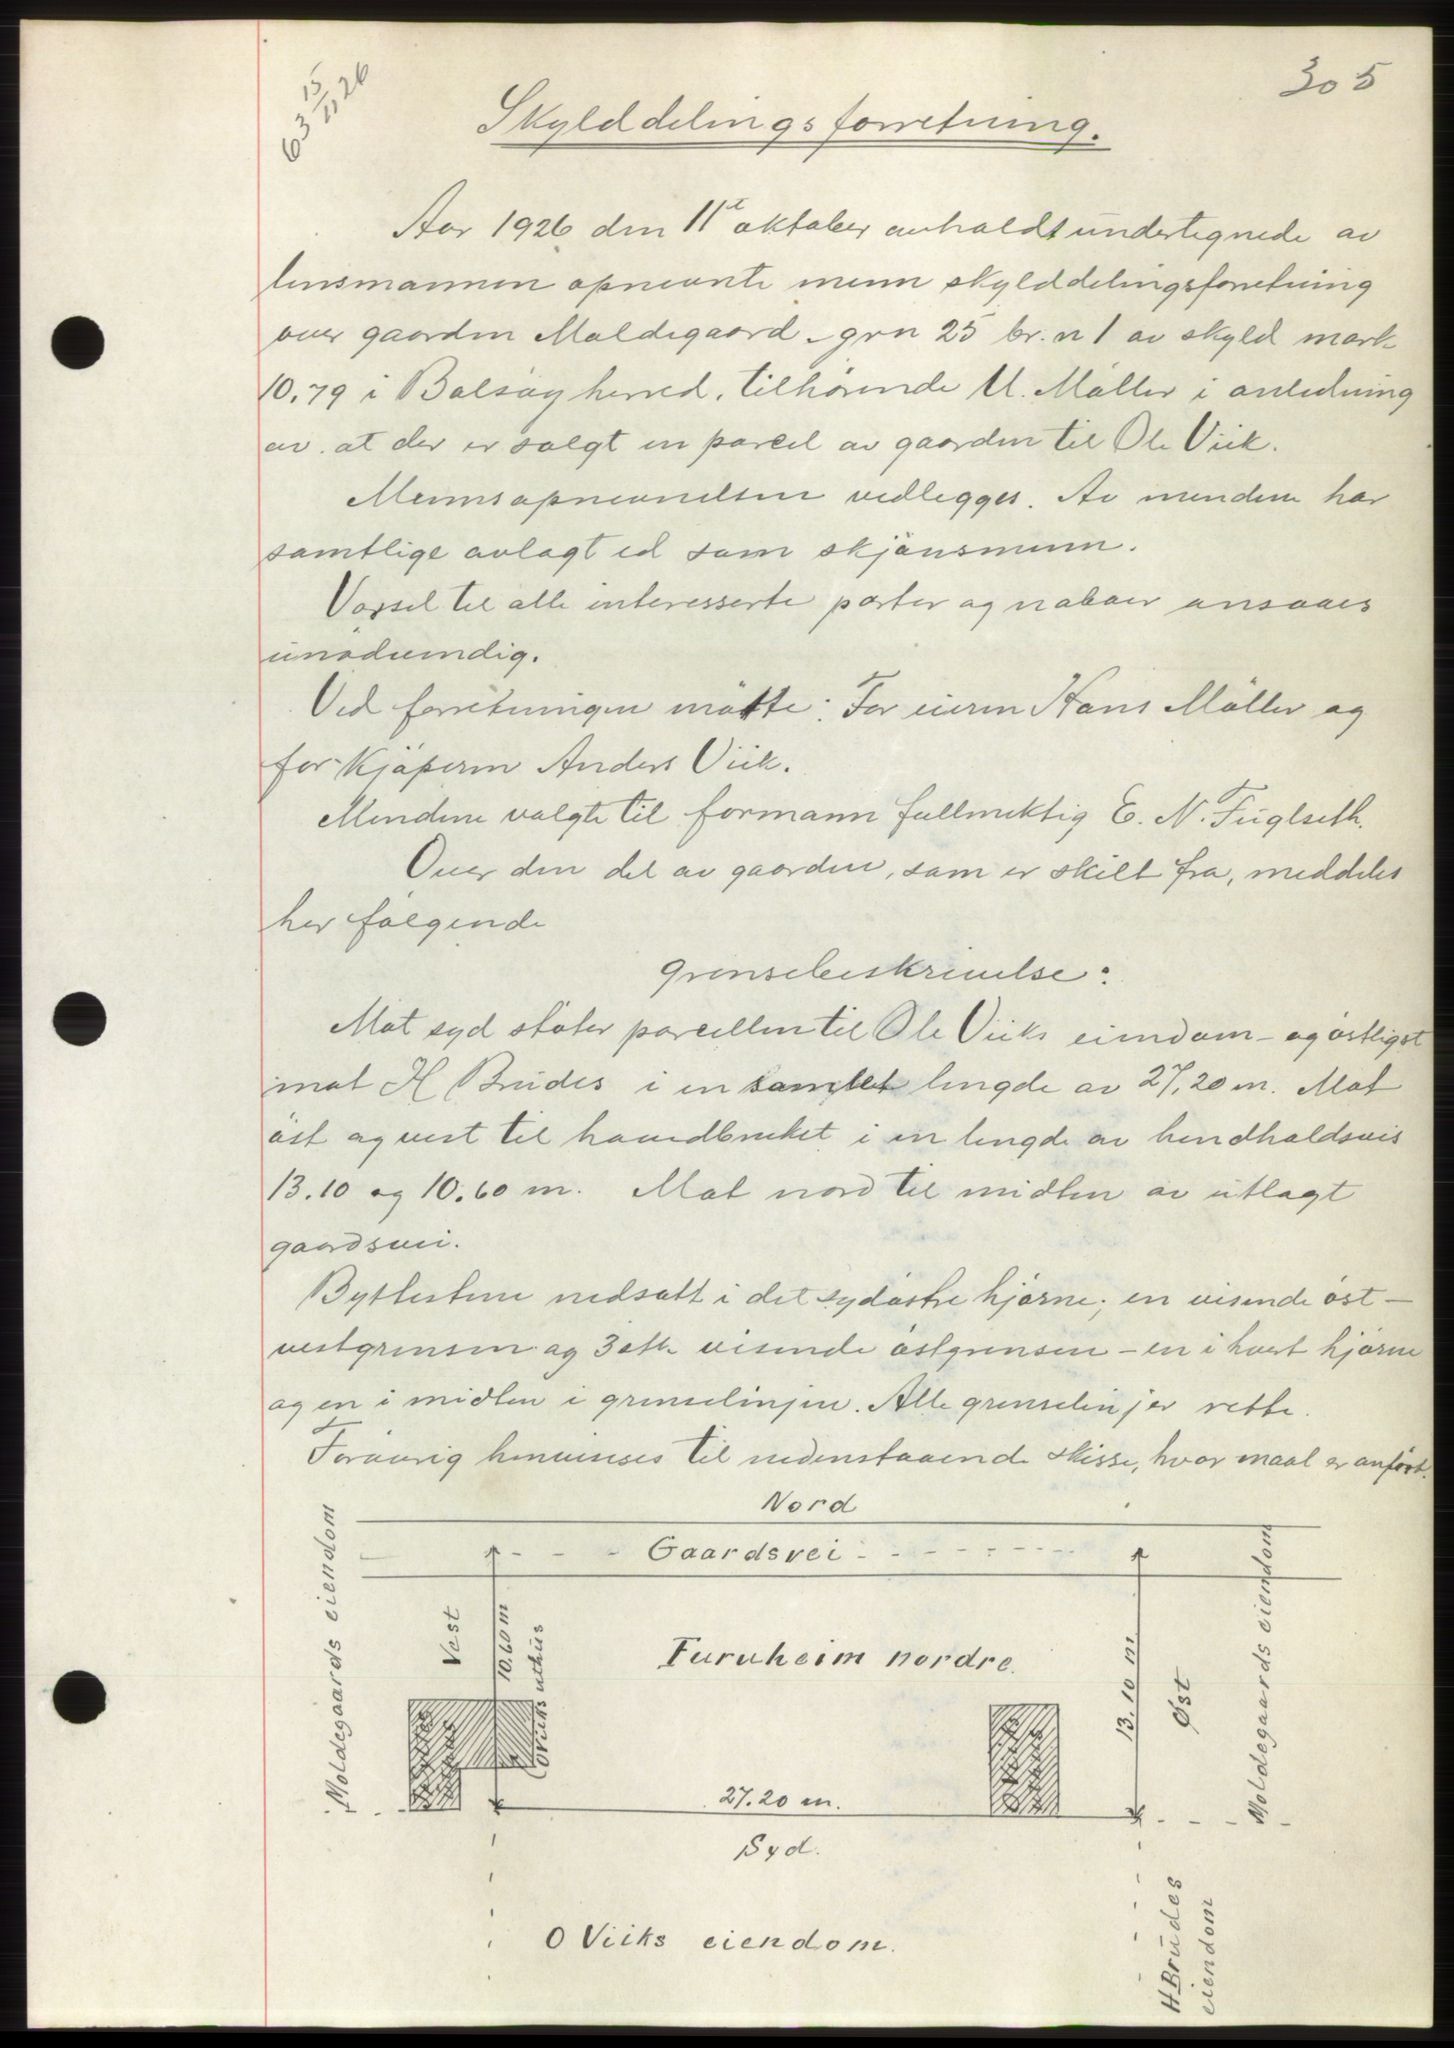 305
63 15/11 26
Skylddelingsforretning.
Aar 1926 den 11te oktober avholdt undertegnede av
lensmannen opnevnte menn skylddelingsforretning
over gaarden Moldegaard - grn 25 br.n 1 av skyld mark
10.79 i Bolsöy herred, tilhörende U. Möller i anledning
av at der er solgt en parcel av gaarden til Ole Viik.
Mennsopnevnelsen vedlegges. Av mendene har
samtlige avlagt ed som skjönsmenn.
Varsel til alle interesserte parter og naboer ansaaes
unödvendig.
Ved forretningen mötte: For eieren Hans Möller og
for kjöperen Anders Viik.
Mendene valgte til formann fullmektig E. N. Fuglseth.
Over den del av gaarden, som er skilt fra, meddeles
her fölgende
grensebeskrivelse:
Mot syd stöter parcellen til Ole Viiks eiendom - og östligst
mot H Brudes i en samlet lengde av 27,20 m. Mot
öst og vest til hovedbruket i en lengde av hendholdsvis
13.10 og 10.60 m. Mot nord til midten av utlagt
gaardsvei.
Byttestene nedsatt i det sydöstre hjörne; en visende öst-
vestgrensen og 3 stk visende östgrensen - en i hvert hjörne
og en i midten i grenselinjen. Alle grenselinjer rette.
Forövrig henvises til nedenstaaende skisse, hvor maal er anfört.
Nord
Gaardsvei
Moldegaards eiendom
Vest
10.60 m
O Viiks uthus
Furuheim nordre.
13.10 m
Øst
Moldegaards eiendom
27.20 m.
Syd.
O Viiks eiendom.
H Brudes
eiendom